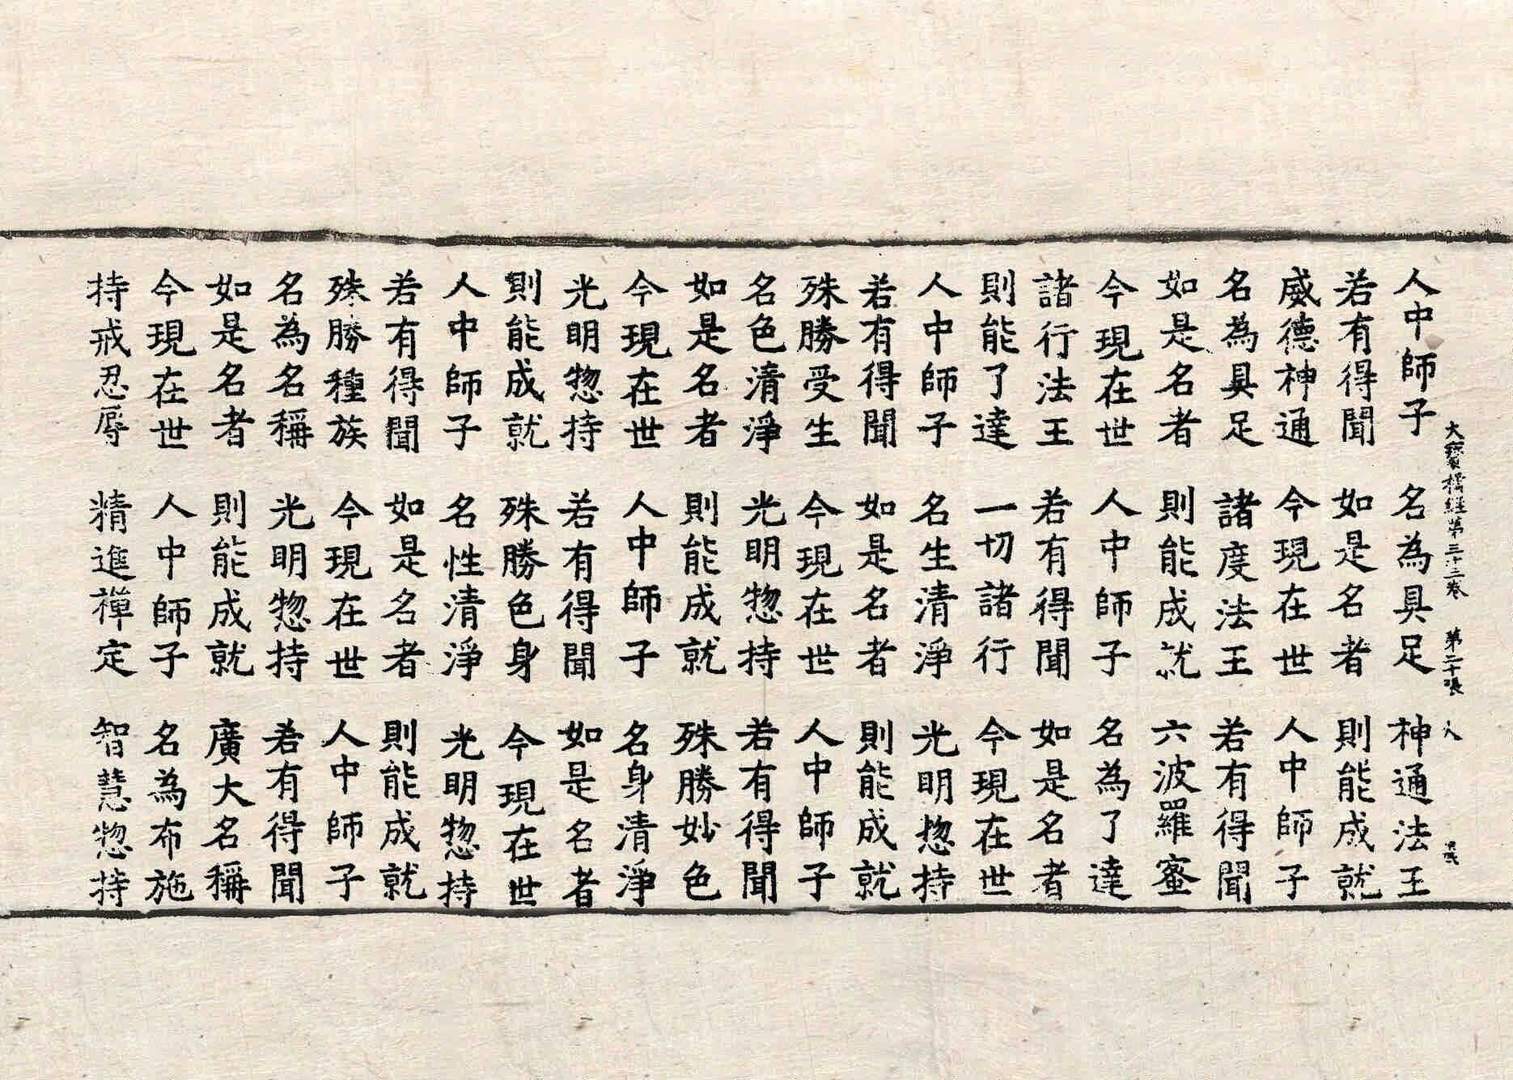 大寶積經第三十二卷 第二十張 人
人中師子 名為具足 神通法王
若有得聞 如是名者 則能成就
威德神通 今現在世 人中師子
名為具足 諸度法王 若有得聞
如是名者 則能成就 六波羅蜜
今現在世 人中師子 名為了達
諸行法王 若有得聞 如是名者
則能了達 一切諸行 今現在世
人中師子 名生清淨 光明惣持
若有得聞 如是名者 則能成就
殊勝受生 今現在世 人中師子
名色清淨 光明惣持 若有得聞
如是名者 則能成就 殊勝妙色
今現在世 人中師子 名身清淨
光明惣持 若有得聞 如是名者
則能成就 殊勝色身 今現在世
人中師子 名性清淨 光明惣持
若有得聞 如是名者 則能成就
殊勝種族 今現在世 人中師子
名為名稱 光明惣持 若有得聞
如是名者 則能成就 廣大名稱
今現在世 人中師子 名為布施
持戒忍辱 精進禪定 智慧惣持